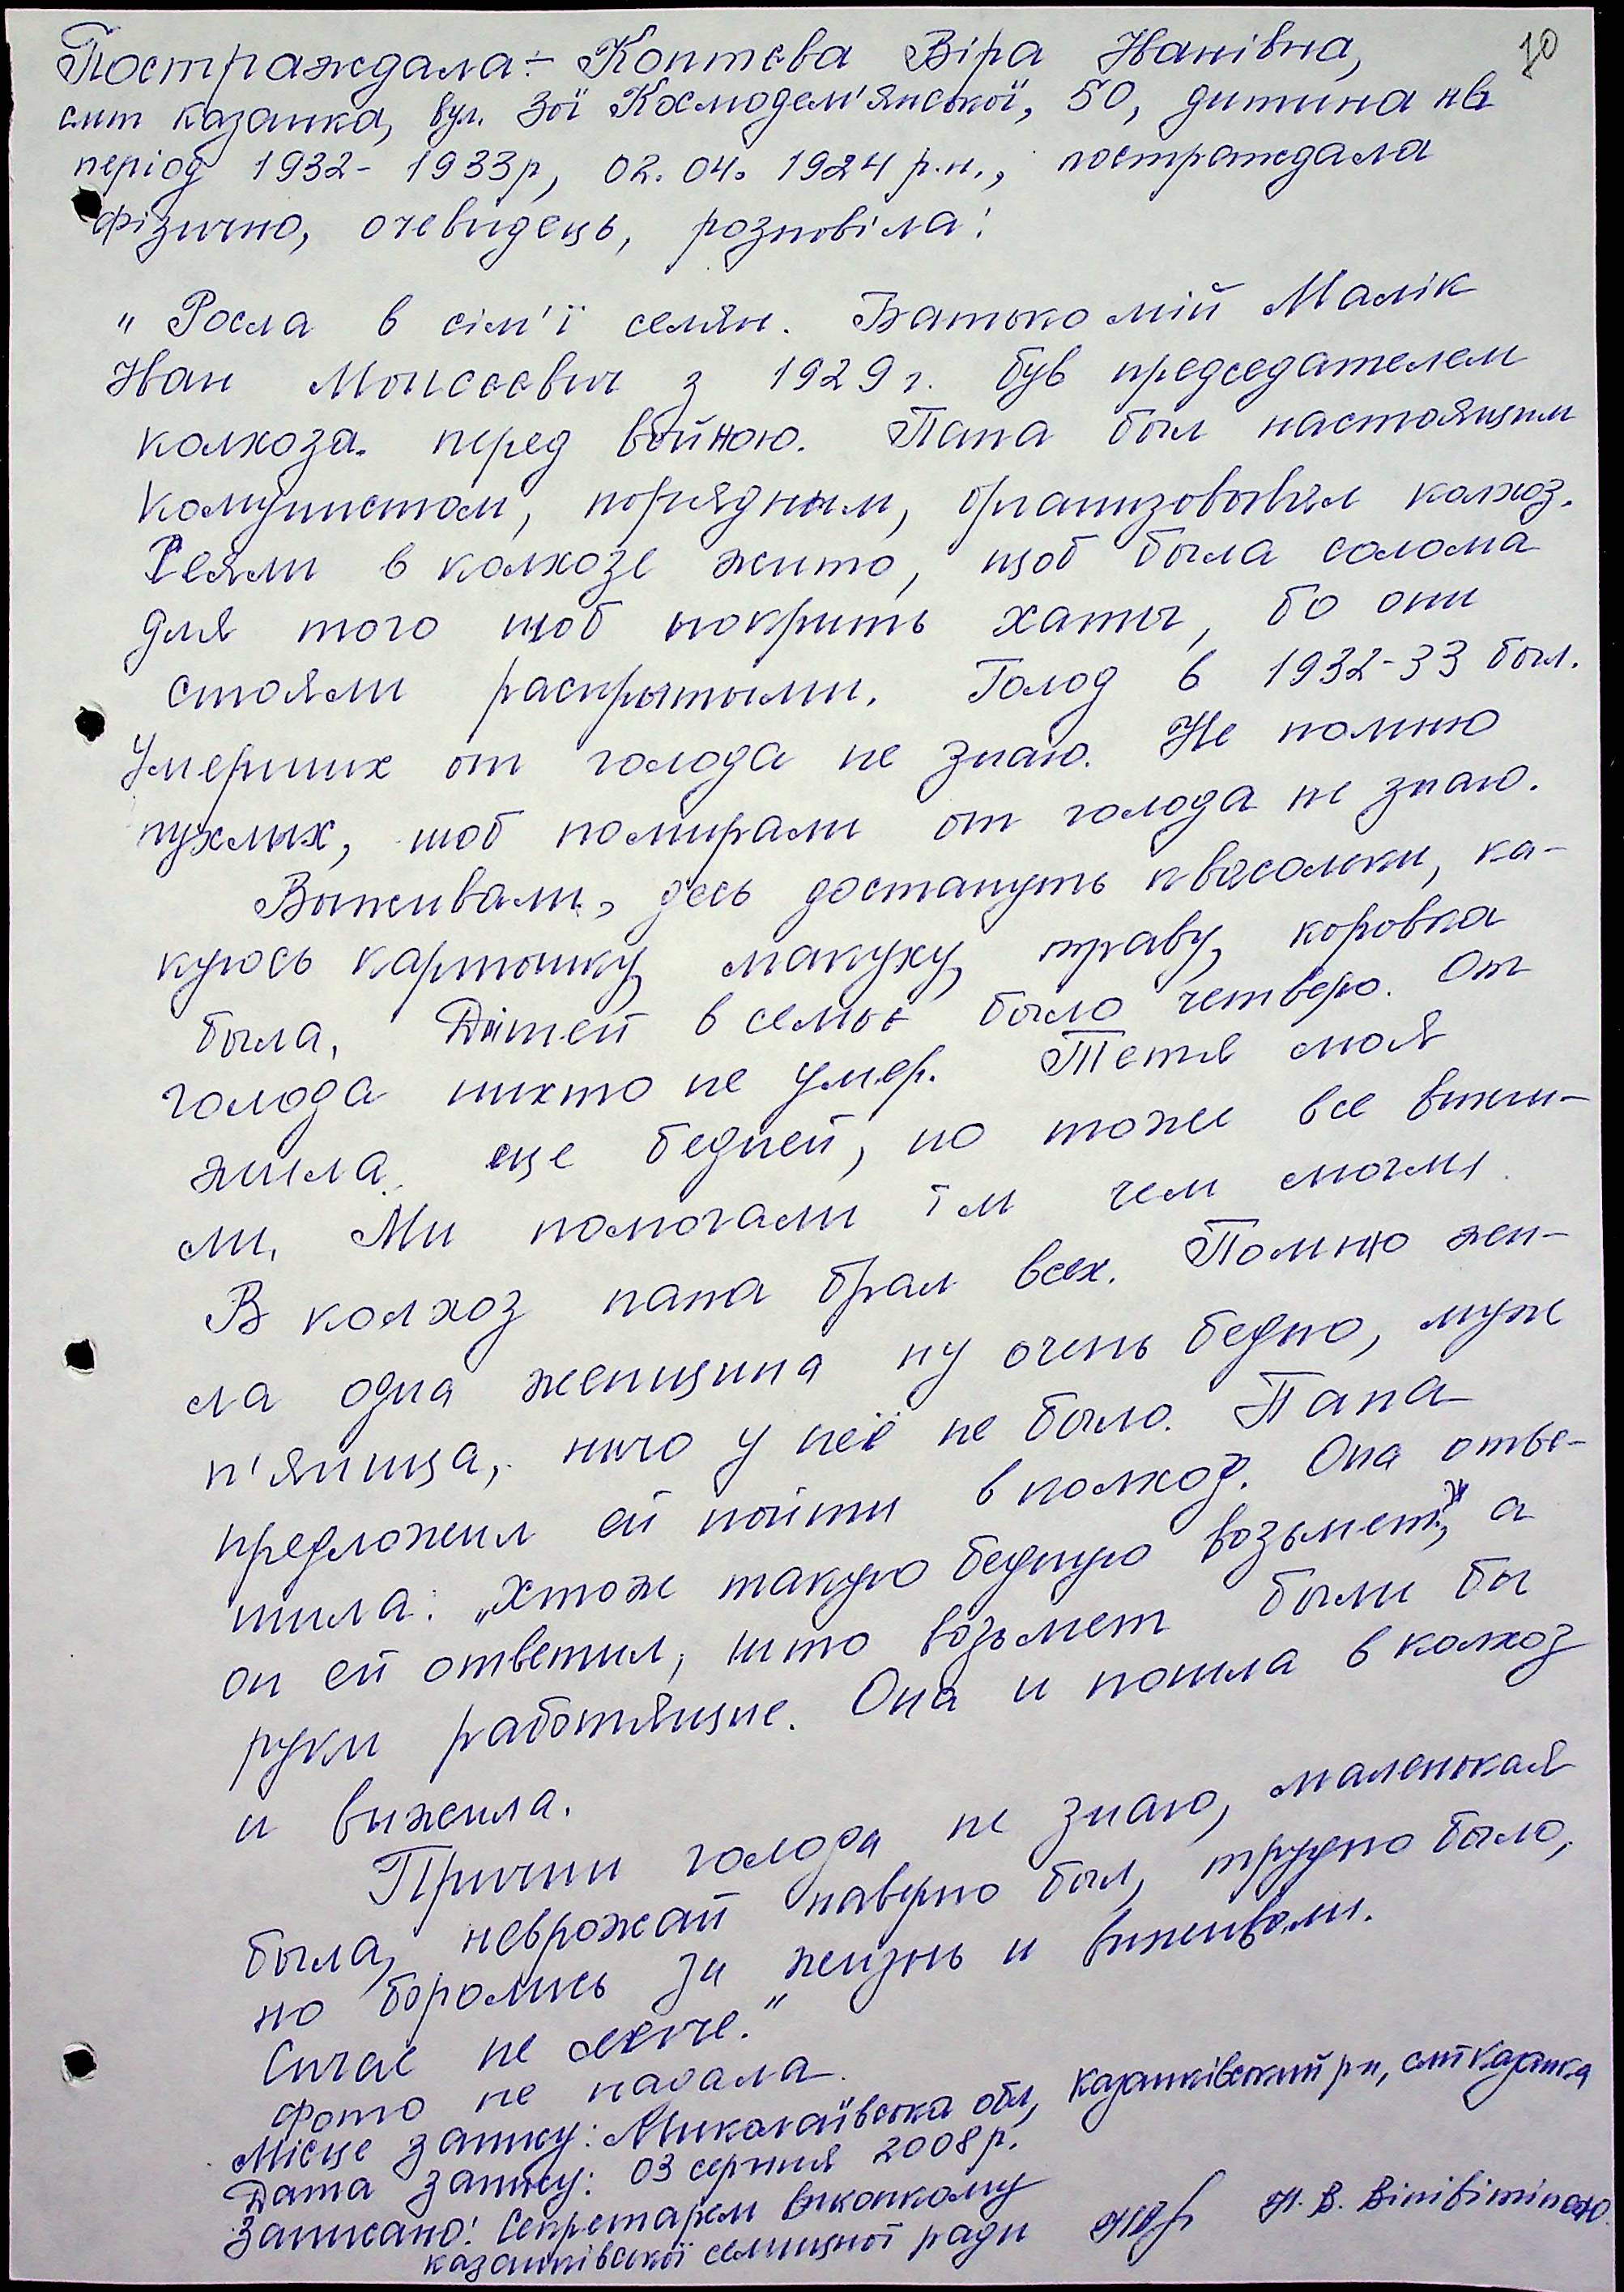 70
Постраждала:- Коптєва Віра Іванівна,
смт Казанка, вул. Зої Космодем'янської, 50, дитина на
період 1932- 1933р, 02. 04. 1924 р.н., постраждала
фізично, очевидець, розповіла:
„ Росла в сім'ї селян. Батько мій Малік
Іван Моисеевич з 1929 г. був председателем
колхоза. перед войною. Папа был настоящим
комунистом, порядным, организовывал колхоз.
Сеяли в колхозе жито, щоб была солома
для того щоб покрить хаты, бо они
стояли раскрытыми. Голод в 1932-33 был.
Умерших от голода не знаю. Не помню
пухлых, шоб помирали от голода не знаю.
Выживали, десь достануть квасольки, ка-
куюсь картошку, макуху, траву, коровка
была. Дітей в семье было четверо. От
голода нихто не умер. Тетя моя
жила еще бедней, но тоже все вижи-
ли. Ми помогали їм чем могли.
В колхоз папа брал всех. Помню жи-
ла одна женщина ну очень бедно, муж
п'яница, ничо у неё не было. Папа
предложил ей пойти в колхоз. Она отве-
тила: „Хтож такую бедную возьмет", а
он ей ответил, што возьмет были бы
руки работящие. Она и пошла в колхоз
и выжила.
Причин голода не знаю, маленькая
была, неврожай наверно был, трудно было,
но боролись за жизнь и виживали.
Сичас не легче."
Фото не надала.
Місце запису: Миколаївська обл, Казанківський р-н, смт Казанка
Дата запису: 03 серпня 2008 р.
Записано: Секретарем виконкому
казанківської селищної ради Н. В.